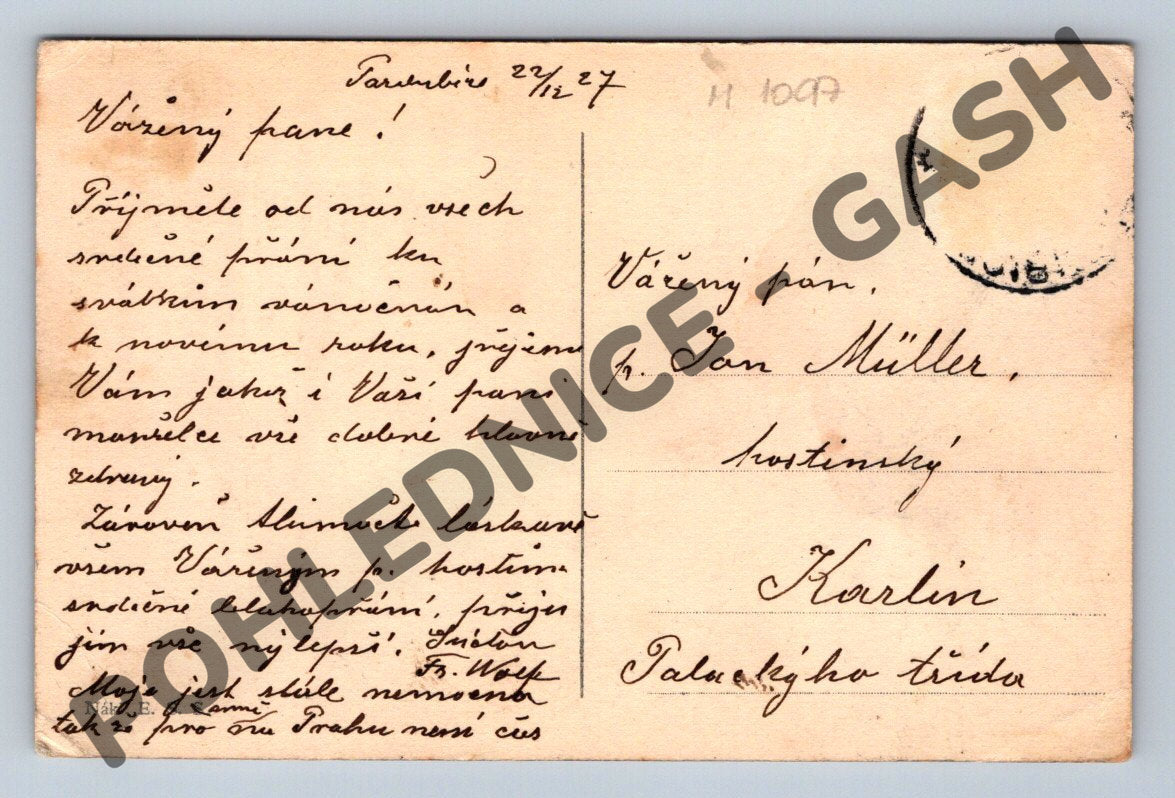 Pardubice 22/12 27
M 1097
Vážený pane!
Příjměte od nás všech
srdečné přání ku
svátkům vánočním a
k novému roku, přejeme
Vám jakož i Vaší paní
manželce vše dobré hlavně
zdraví.
Zároveň tlumočte láskavě
všem Váženým p. hostím
srdečné blahopřání, přeju
jim vše nejlepší.
Fr. Wolf
Moje jest stále nemocna
tak že pro ní Prahu není čas
Nákl. E.
Vážený pán.
p. Jan Müller,
hostinský
Karlin
Palackýho třída
POHLEDNICE - GASH